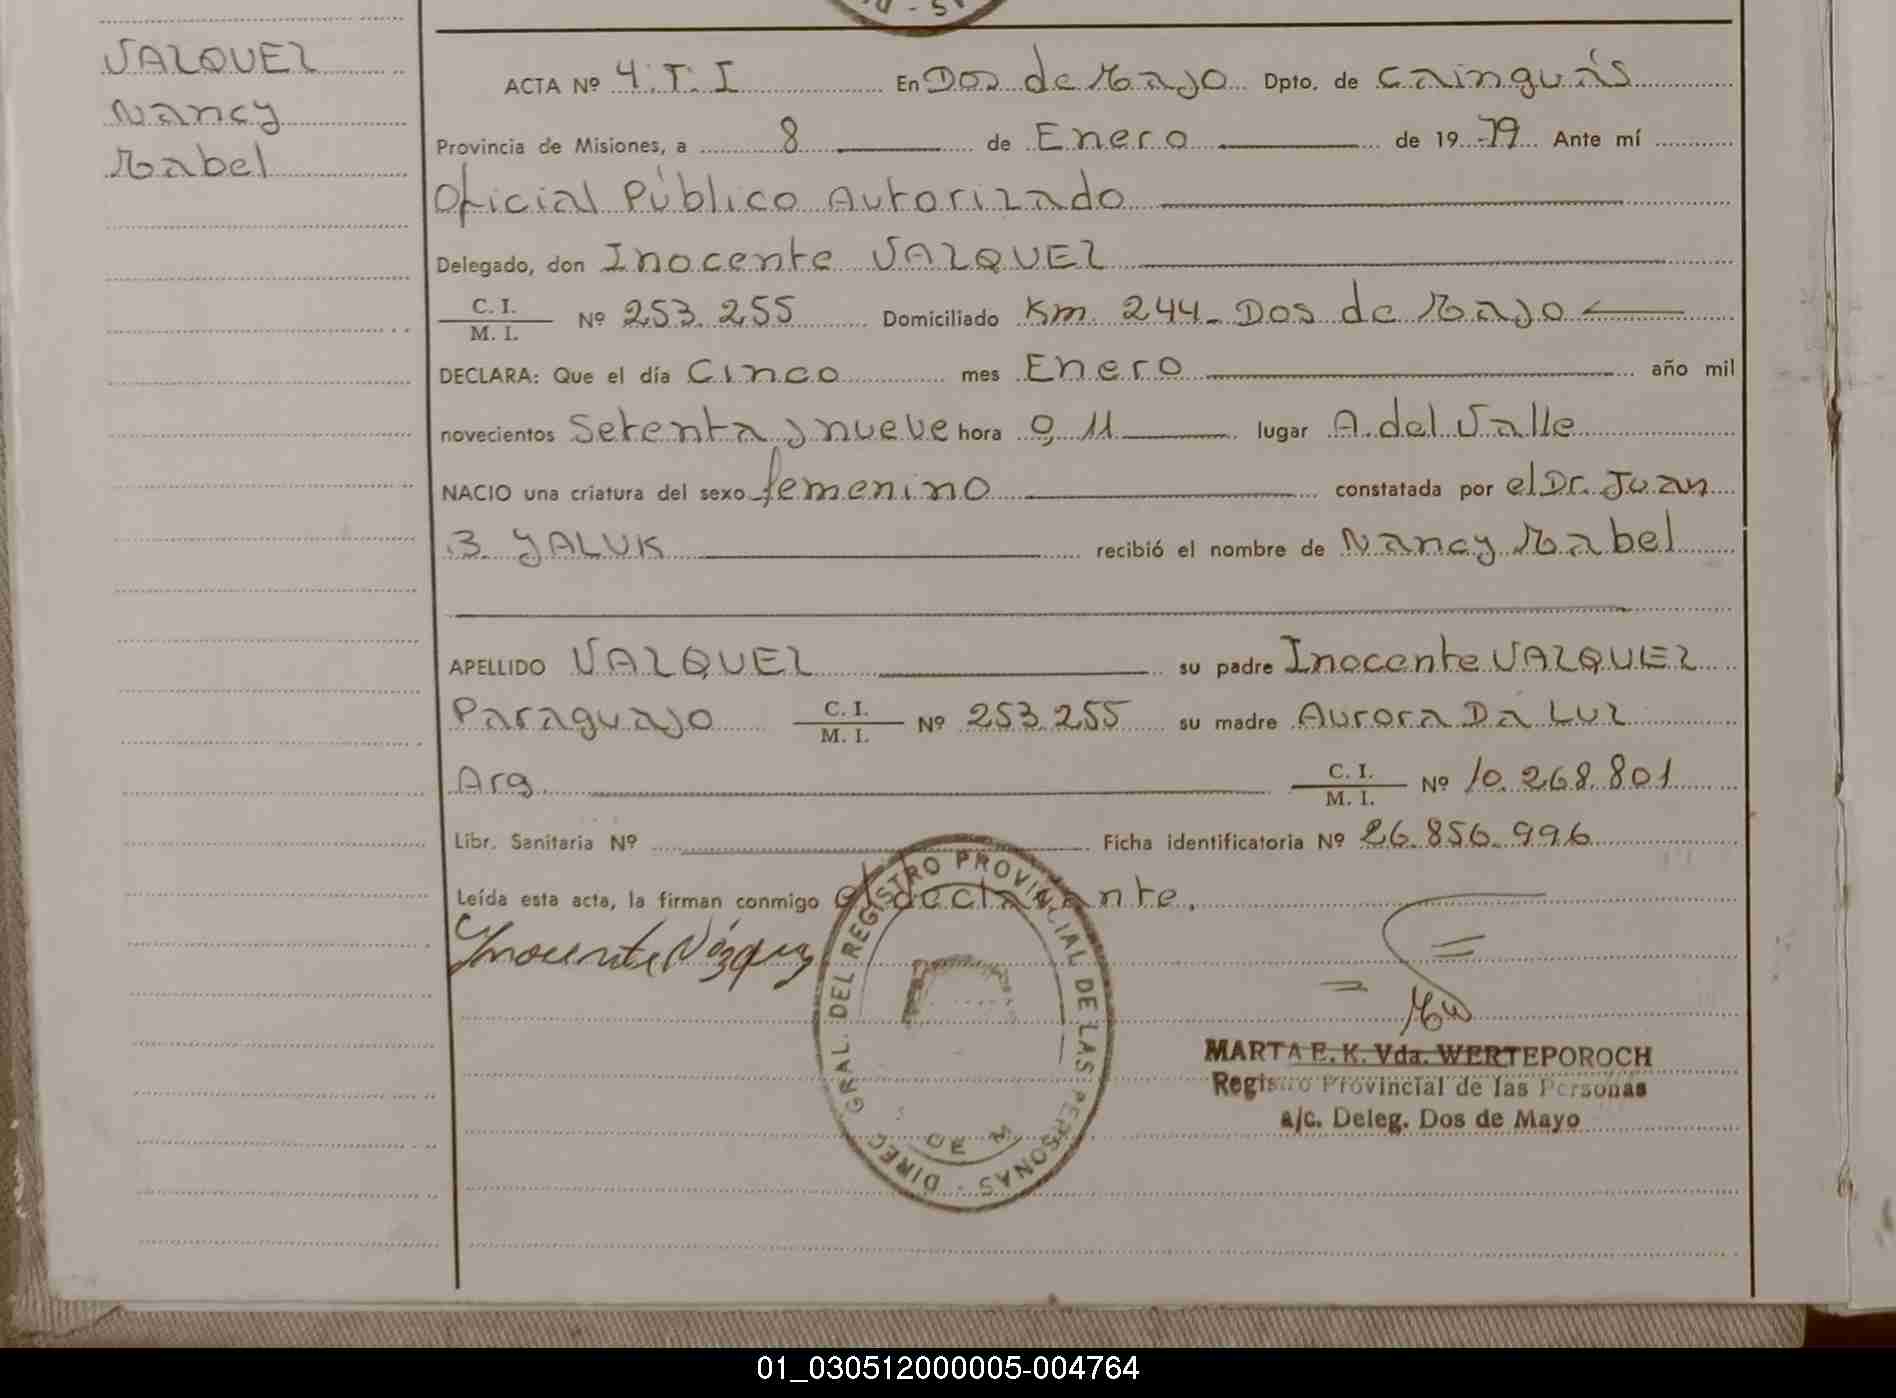 VAZQUEZ
Nancy
Mabel
ACTA Nº 4. T. I En Dos de Mayo Dpto. de Cainguás
Provincia de Misiones, a 8 de Enero de 1979 Ante mí
Oficial Público Autorizado
Delegado, don Inocente VAZQUEZ
C. I.
M. I. Nº 253.255 Domiciliado Km. 244 - Dos de Mayo
DECLARA: Que el día Cinco mes Enero año mil
novecientos Setenta y nueve hora 0,11 lugar A. del Valle
NACIO una criatura del sexo femenino constatada por el Dr. Juan
B. YALUK recibió el nombre de Nancy Mabel
APELLIDO VAZQUEZ su padre Inocente VAZQUEZ
Paraguayo C. I.
M. I. Nº 253.255 su madre Aurora Da Luz
Arg. C. I.
M. I. Nº 10.268.801
Libr. Sanitaria Nº Ficha identificatoria Nº 26.856.996
Leída esta acta, la firman conmigo el declarante.
Inocente Vázquez
DIREC. GRAL. DEL REGISTRO PROVINCIAL DE LAS PERSONAS
MARTA E. K. Vda. WERTEPOROCH
Registro Provincial de las Personas
a/c. Deleg. Dos de Mayo
01_030512000005-004764